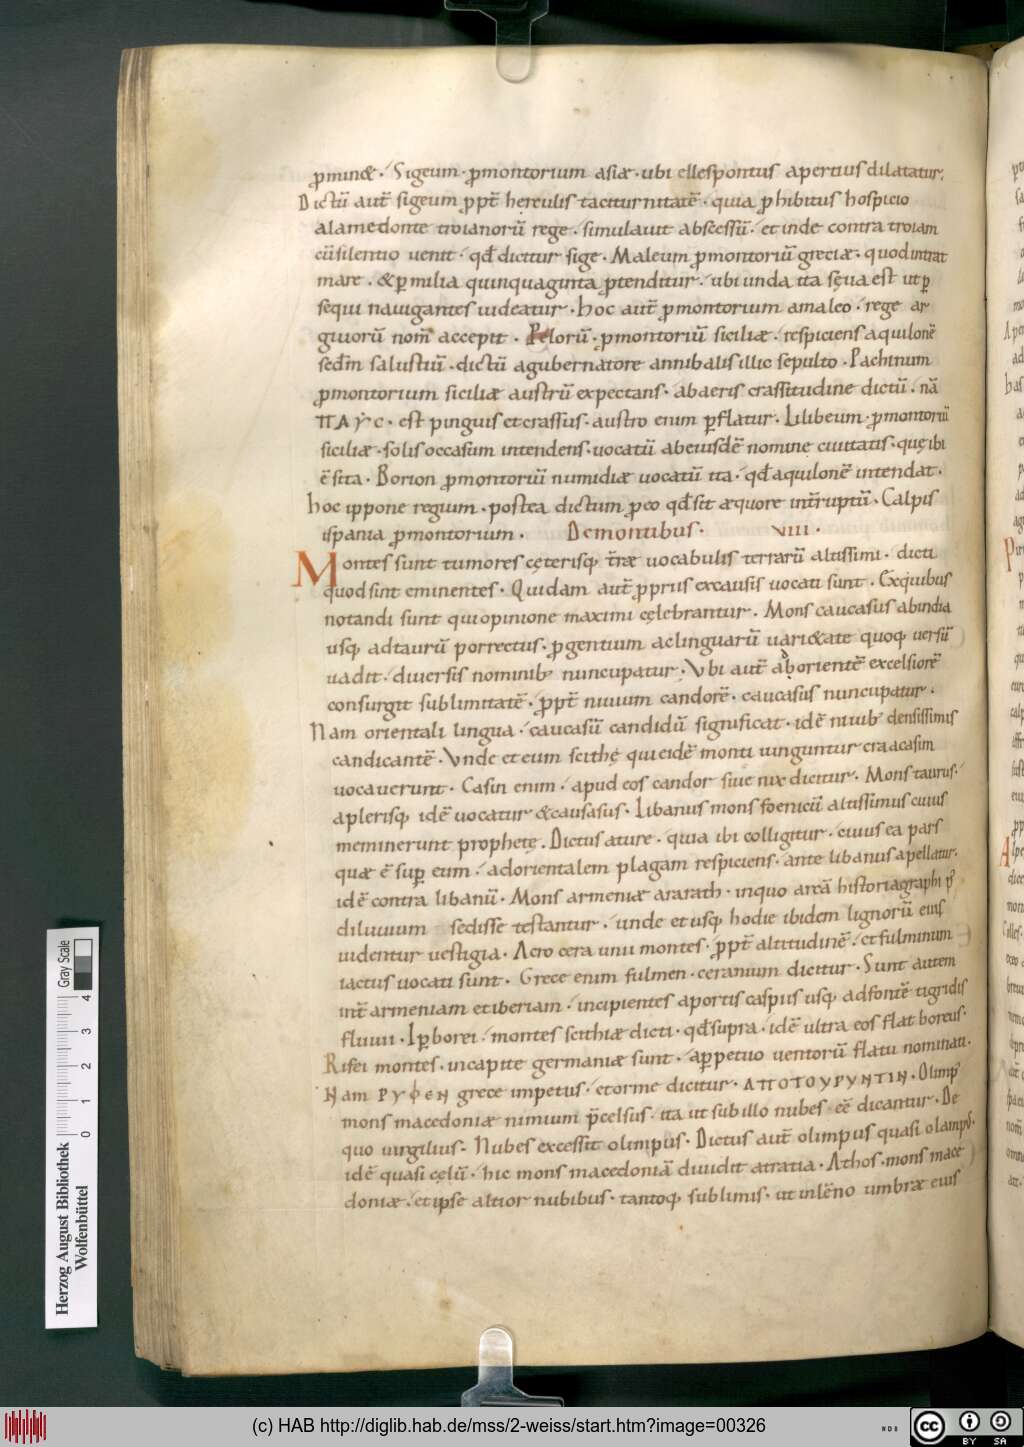 ꝓminet. Sigeum. ꝓmontorium asiæ. ubi ellespontus apertius dilatatur.
Dictū aut̄ sigeum ꝓpt̄ herculis taciturnitatē. quia ꝓhibitus hospicio
alamedonte troianorū rege. simulauit abscessū. et inde contra troiam
cū silentio uenit. qđ dicitur sige. Maleum ꝓmontoriū greciæ. quod intrat
mare. & ꝑ milia quinquaginta ꝓtenditur. ubi unda ita sęua est ut ꝑ
sequi nauigantes uideatur. hoc aut̄ ꝓmontorium amaleo. rege ar
giuorū nom̄ accepit. Pelorū. ꝓmontoriū siciliæ. respiciens aquilonē
sedm̄ salustiū. dictū agubernatore annibalis illic sepulto. Pachinum
ꝓmontorium siciliæ austrū expectans. abaeris crassitudine dictū. nā
ΠΑΥC. est pinguis et crassus. austro enim ꝑflatur. Lilibeum. ꝓmontoriū
siciliæ. solis occasum intendens. uocatū abeiusdē nomine ciuitatis. quę ibi
ē sita. Borion ꝓmontoriū numidiæ uocatū ita. qđ aquilonē intendat.
hoc ippone regium. postea dictum ꝓeo qđ sit æquore int̄ruptū. Calpis
ispania ꝓmontorium. Demontibus. VIII.
Montes sunt tumores cęterisqꝫ t̄ræ uocabulis terrarū altissimi. dicti
quod sint eminentes. Quidam aut̄ ꝓprus excausis uocati sunt. Exquibus
notandi sunt qui opinione maximi cęlebrantur. Mons caucasus abindia
usqꝫ adtaurū porrectus. ꝓgentium aclinguarū uari&ate quoqꝫ uersū
uadit. diuersis nominibꝫ nuncupatur. Vbi aut̄ ab orientē excelsiorē
consurgit sublimitatē. ꝓpt̄ niuium candorē. caucasus nuncupatur.
Nam orientali lingua. caucasū candidū significat. idē niuibꝫ densissimis
candicantē. Vnde et eum scithę qui eidē monti iunguntur craacasim
uocauerunt. Casin enim. apud eos candor siue nix dicitur. Mons taurus.
aplerisqꝫ idē uocatur & causasus. Libanus mons foenicū altissimus cuius
meminerunt prophetę. Dictus ature. quia ibi colligitur. cuius ea pars
quæ ē suꝑ eum. adorientalem plagam respiciens. ante libanus apellatur.
idē contra libanū. Mons armeniæ ararath. inquo arcā historiagraphi pꝰ
diluuium sedisse testantur. unde et usqꝫ hodie ibidem lignorū eius
uidentur uestigia. Acro cera unii montes. ꝓpt̄ altitudinē. et fulminum
iactus uocati sunt. Grece enim fulmen. ceranium dicitur. Sunt autem
int̄ armeniam et iberiam. incipientes aportis caspiis usqꝫ adfontē tigridis
fluuii. Iꝑborei. montes scithiæ dicti. qđ supra. idē ultra eos flat boreus.
Rifei montes. incapite germaniæ sunt. aꝑpetuo uentorū flatu nominati.
Nam ΡΥΦΕΝ grece impetus. et orme dicitur. ΑΠΟΤΟΥΡΥΠΤΙΝ. Olimpꝰ
mons macedoniæ nimium p̄celsus. ita ut sub illo nubes eē dicantur. De
quo uirgilius. Nubes excessit olimpus. Dictus aut̄ olimpus quasi olampꝰ.
idē quasi cęlū. hic mons macedoniā diuidit atratia. Athos. mons mace
doniæ. et ipse altior nubibus. tantoqꝫ sublimis. ut inlēno umbræ eius
Herzog August Bibliothek
Wolfenbüttel
0 1 2 3 4
Gray Scale
(c) HAB http://diglib.hab.de/mss/2-weiss/start.htm?image=00326
cc BY SA